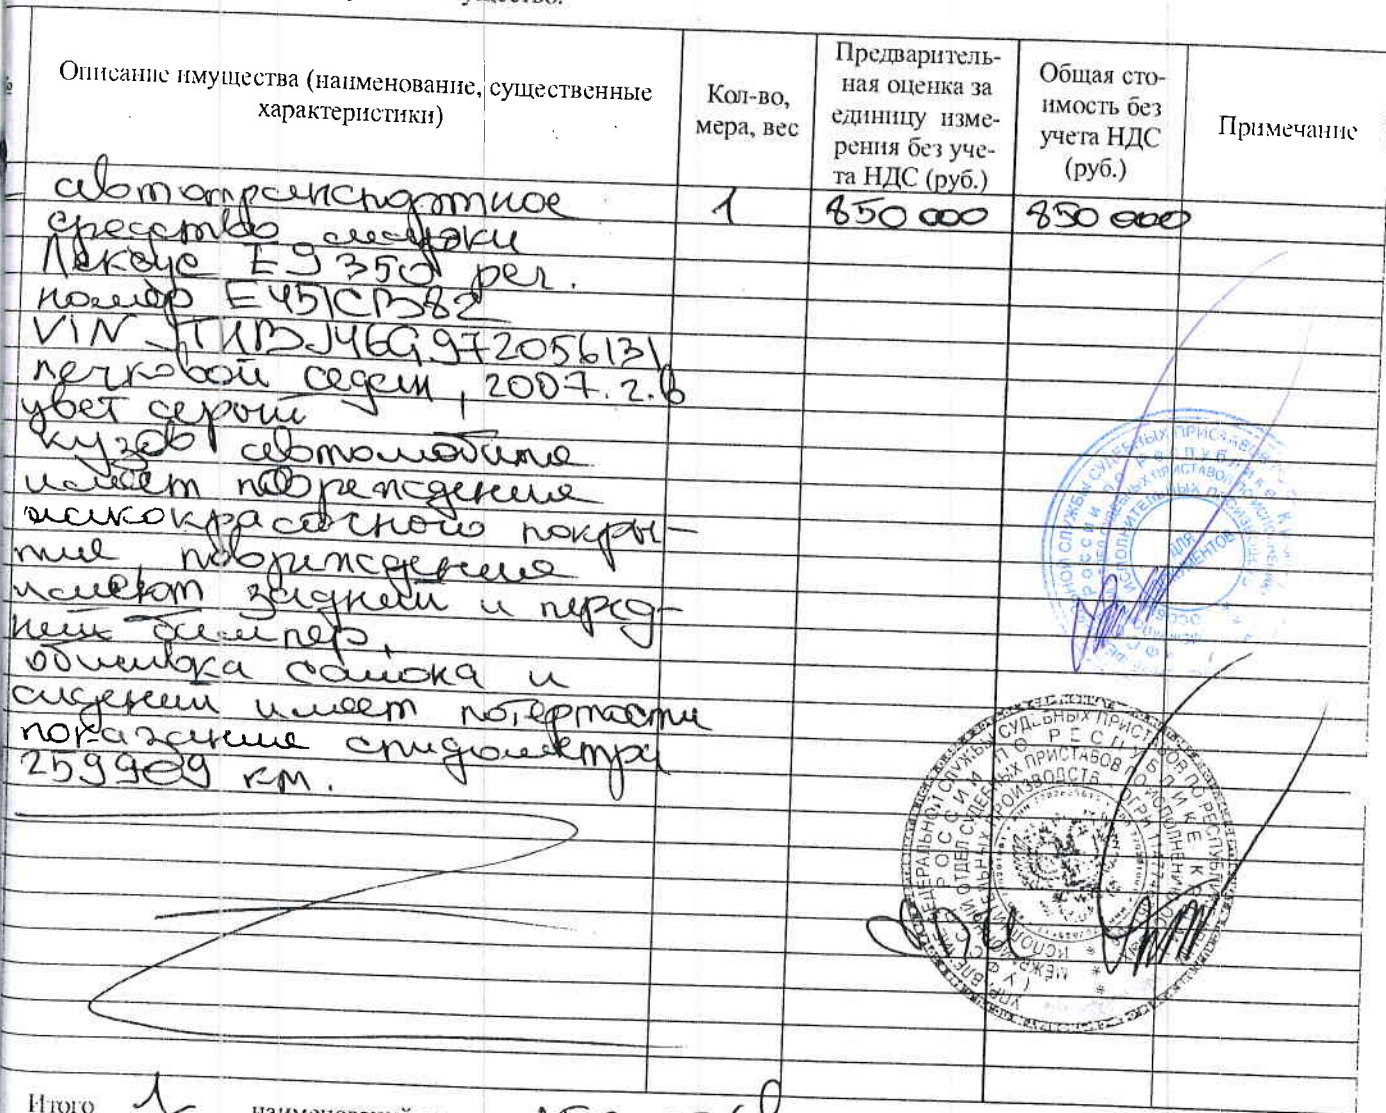 Описание имущества (наименование, существенные
характеристики)
Кол-во,
мера, вес
Предваритель-
ная оценка за
единицу изме-
рения без уче-
та НДС (руб.)
Общая сто-
имость без
учета НДС
(руб.)
Примечание
автотранспортное
средство марки
1
850 000
850 000
Лексус ЕS 350 рег.
номер Е451СВ82
VIN JTHBJ46G972056131
легковой седан, 2007 г.в
цвет серый
кузов автомобиля
имеет повреждения
лакокрасочного покры-
тия, повреждения
имеют задний и перед-
ний бампер,
обшивка салона и
сидений имеет потертости
показание спидометра
259909 км.
Итого 1